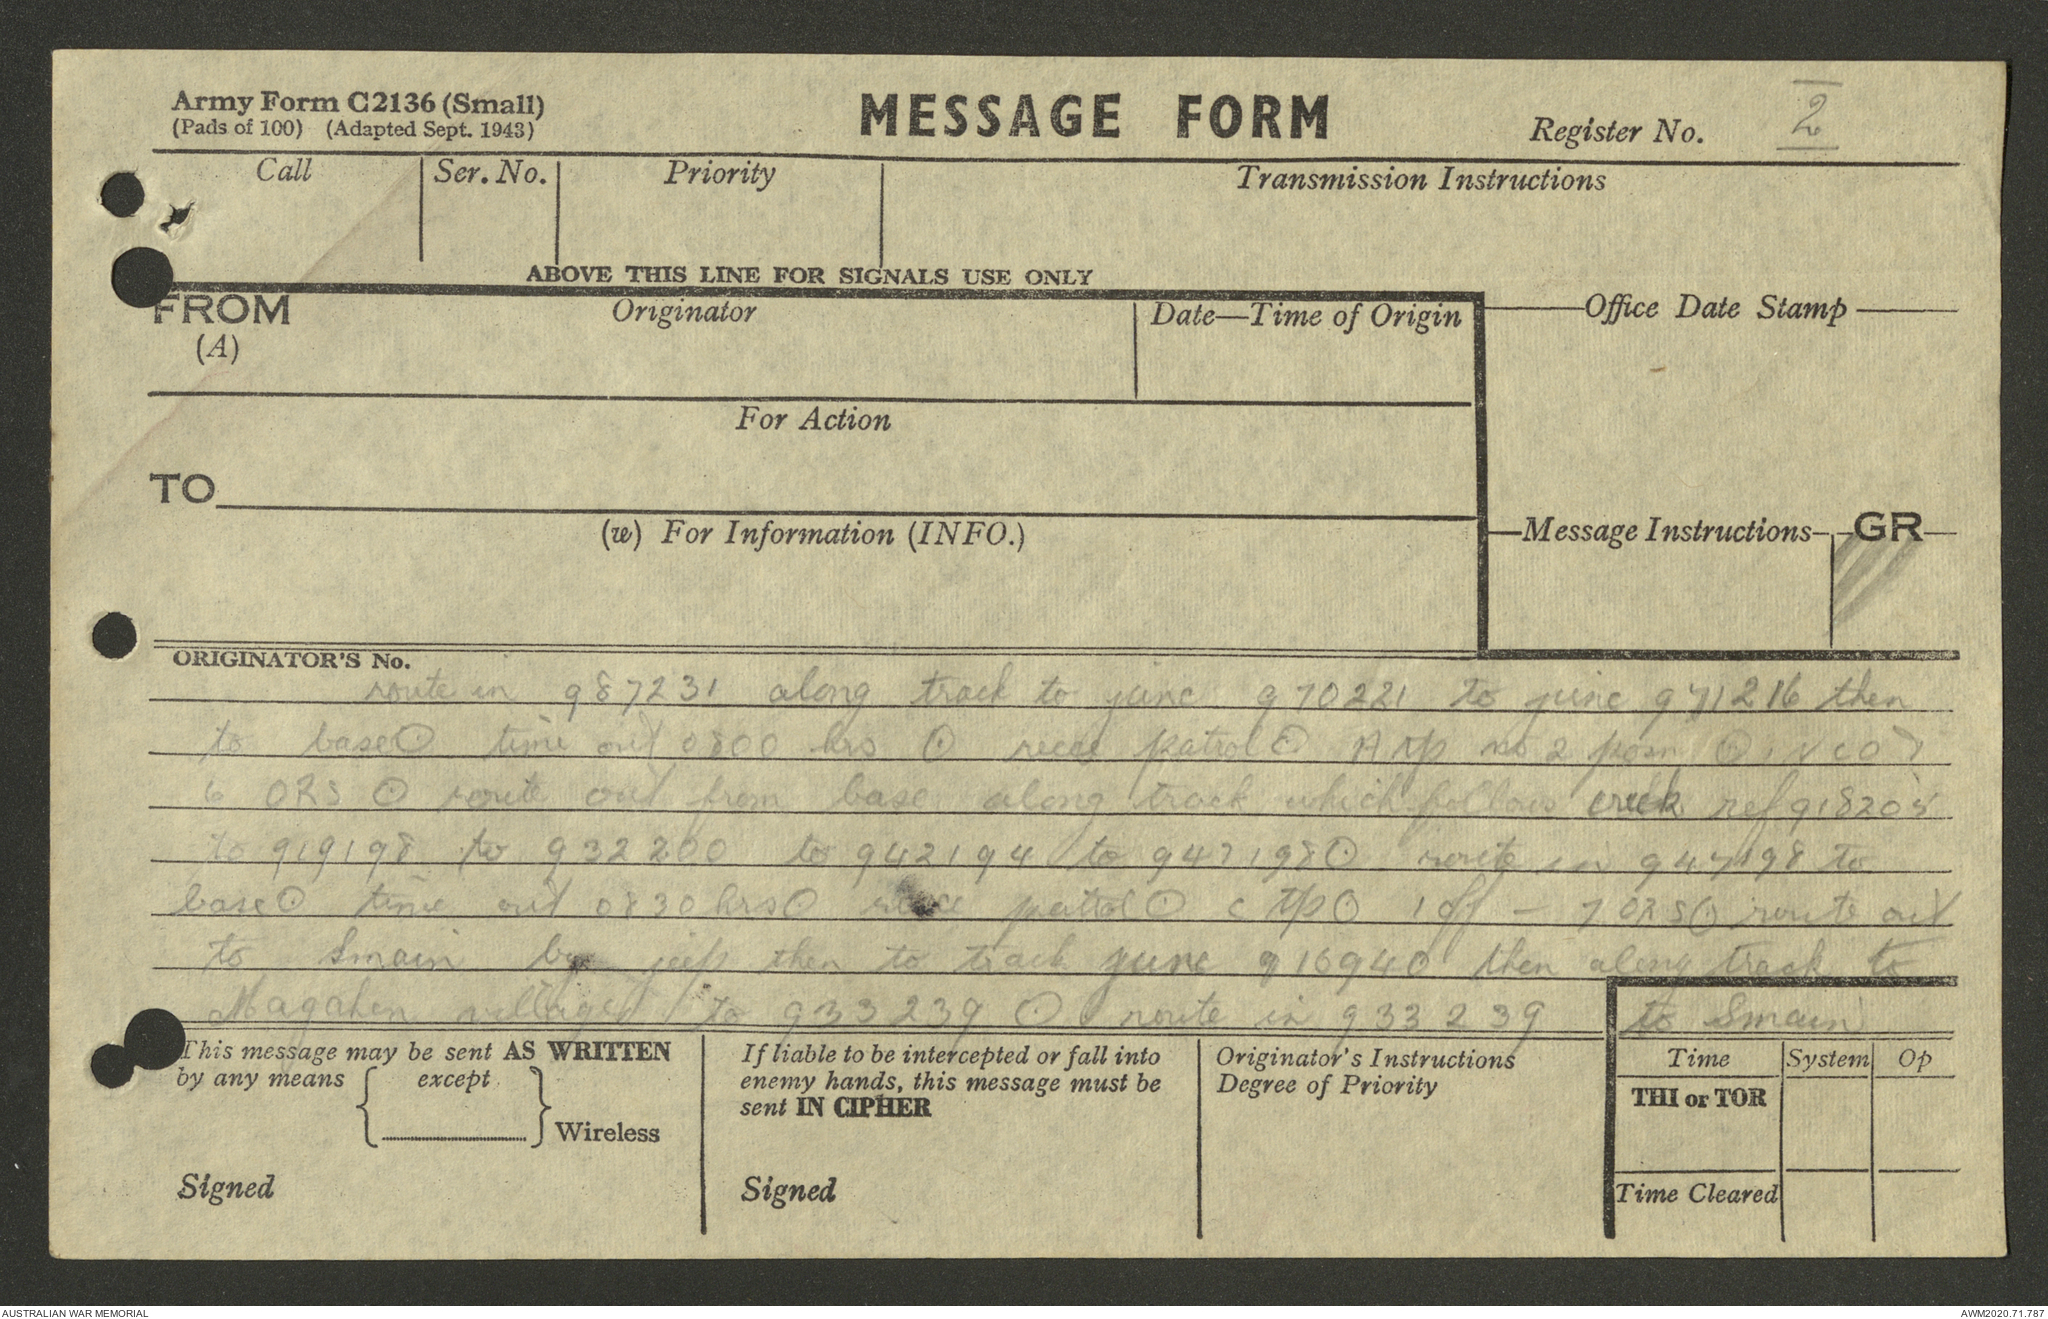 Army Form C2136 (Small)
(Pads of 100) (Adapted Sept. 1943)
MESSAGE FORM
Register No. 2
Call
Ser. No.
Priority
Transmission Instructions
ABOVE THIS LINE FOR SIGNALS USE ONLY
FROM
(A)
Originator
Date—Time of Origin
Office Date Stamp
For Action
TO
(w) For Information (INFO.)
Message Instructions
GR
ORIGINATOR'S No.
route in 987231 along track to junc 970221 to junc 971216 then
to base ⊙ time out 0800 hrs ⊙ recce patrol ⊙ A tp no 2 ⊙ 1
6 ORS ⊙ route out from base along track which follows creek ref 918205
to 919198 to 932200 to 942194 to 947198 ⊙ route in 947198 to
base ⊙ time out 0830 hrs ⊙ recce patrol ⊙ C tp ⊙ 1 off – 7 ORS ⊙ route out
to Smain by jeep then to track junc 916940 then along track to
Magahen village to 933239 ⊙ route in 933239 to Smain
This message may be sent AS WRITTEN
by any means except
Wireless
Signed
If liable to be intercepted or fall into
enemy hands, this message must be
sent IN CIPHER
Signed
Originator's Instructions
Degree of Priority
Time
System
Op
THI or TOR
Time Cleared
AUSTRALIAN WAR MEMORIAL
AWM2020.71.787